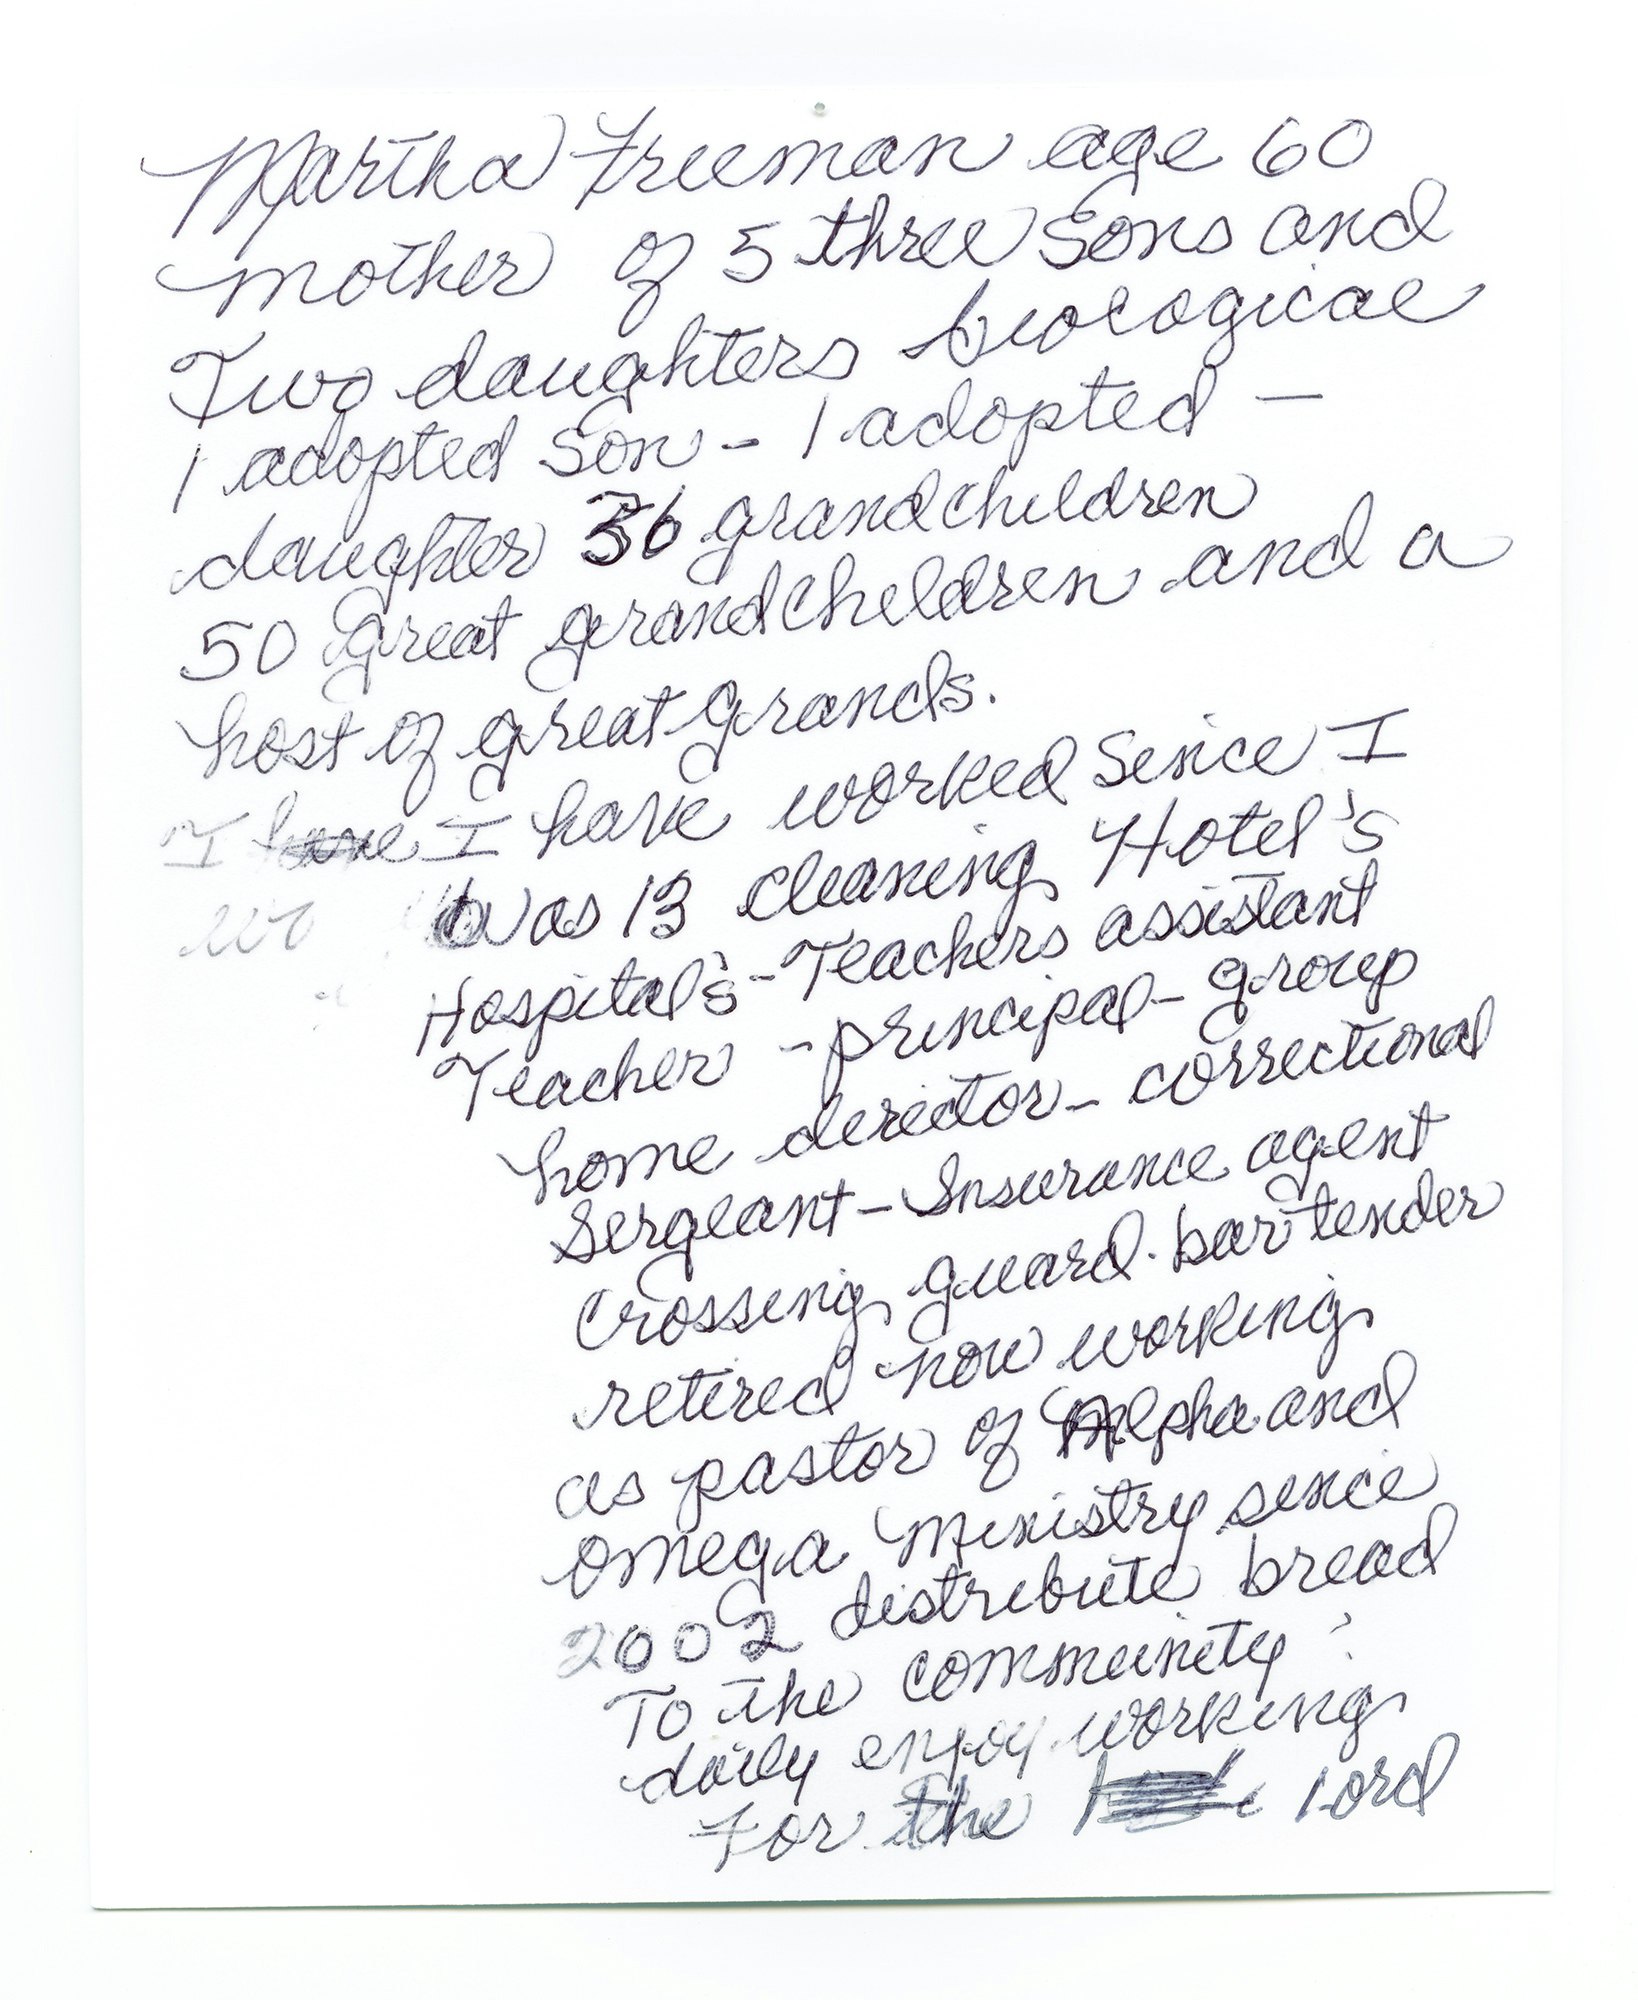 Martha Freeman age 60
mother of 5 three Sons and
Two daughters biological
1 adopted Son - 1 adopted -
daughter 36 grandchildren
50 great grandchildren and a
host of great grands.
I have I have worked Since I
was 13 cleaning Hotel's
Hospital's - Teachers assistant
Teacher - principal - group
home director - correctional
Sergeant - Insurance agent
Crossing guard. bartender
retired now working
as pastor of Alpha and
Omega Ministry since
2002 distribute bread
To the community
daily enjoy working
For the Lord